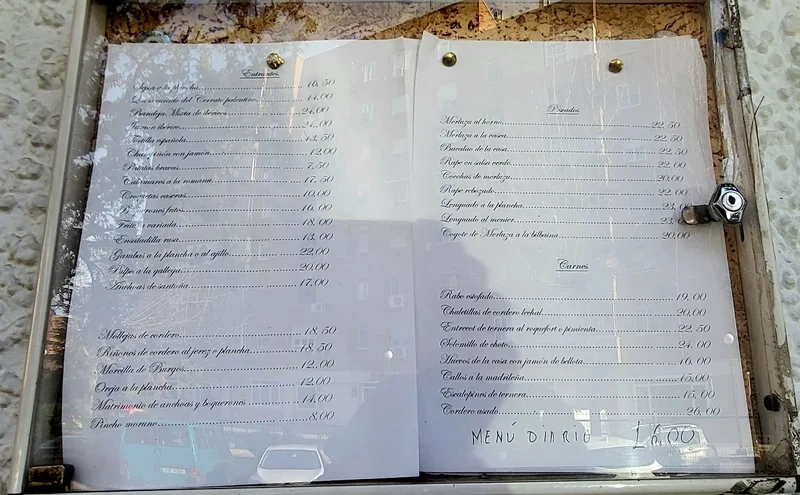 Entrantes
Sepia a la plancha 16,50
Queso curado del Cerrato palentino 14,00
Bandeja Mixta de ibericos 24,00
Jamón ibérico 24,00
Tortilla española 13,50
Champiñón con jamón 12,00
Patatas bravas 7,50
Calamares a la romana 17,50
Croquetas caseras 10,00
Boquerones fritos 16,00
Fritura variada 18,00
Ensaladilla rusa 13,00
Gambas a la plancha o al ajillo 22,00
Pulpo a la gallega 20,00
Anchoas de santoña 17,00
Mollejas de cordero 18,50
Riñones de cordero al jerez o plancha 18,50
Morcilla de Burgos 12,00
Oreja a la plancha 12,00
Matrimonio de anchoas y boquerones 14,00
Pincho moruno 8,00
Pescados
Merluza al horno 22,50
Merluza a la vasca 22,50
Bacalao de la casa 22,50
Rape en salsa verde 22,00
Cocochas de merluza 20,00
Rape rebozado 22,00
Lenguado a la plancha 23,
Lenguado al menier 23,
Cogote de Merluza a la bilbaina 20,00
Carnes
Rabo estofado 19,00
Chuletillas de cordero lechal 20,00
Entrecot de ternera al roquefort o pimienta 22,50
Solomillo de choto 24,00
Huevos de la casa con jamón de bellota 16,00
Callos a la madrileña 15,00
Escalopines de ternera 15,00
Cordero asado 26,00
MENÚ DIARIO 16,00